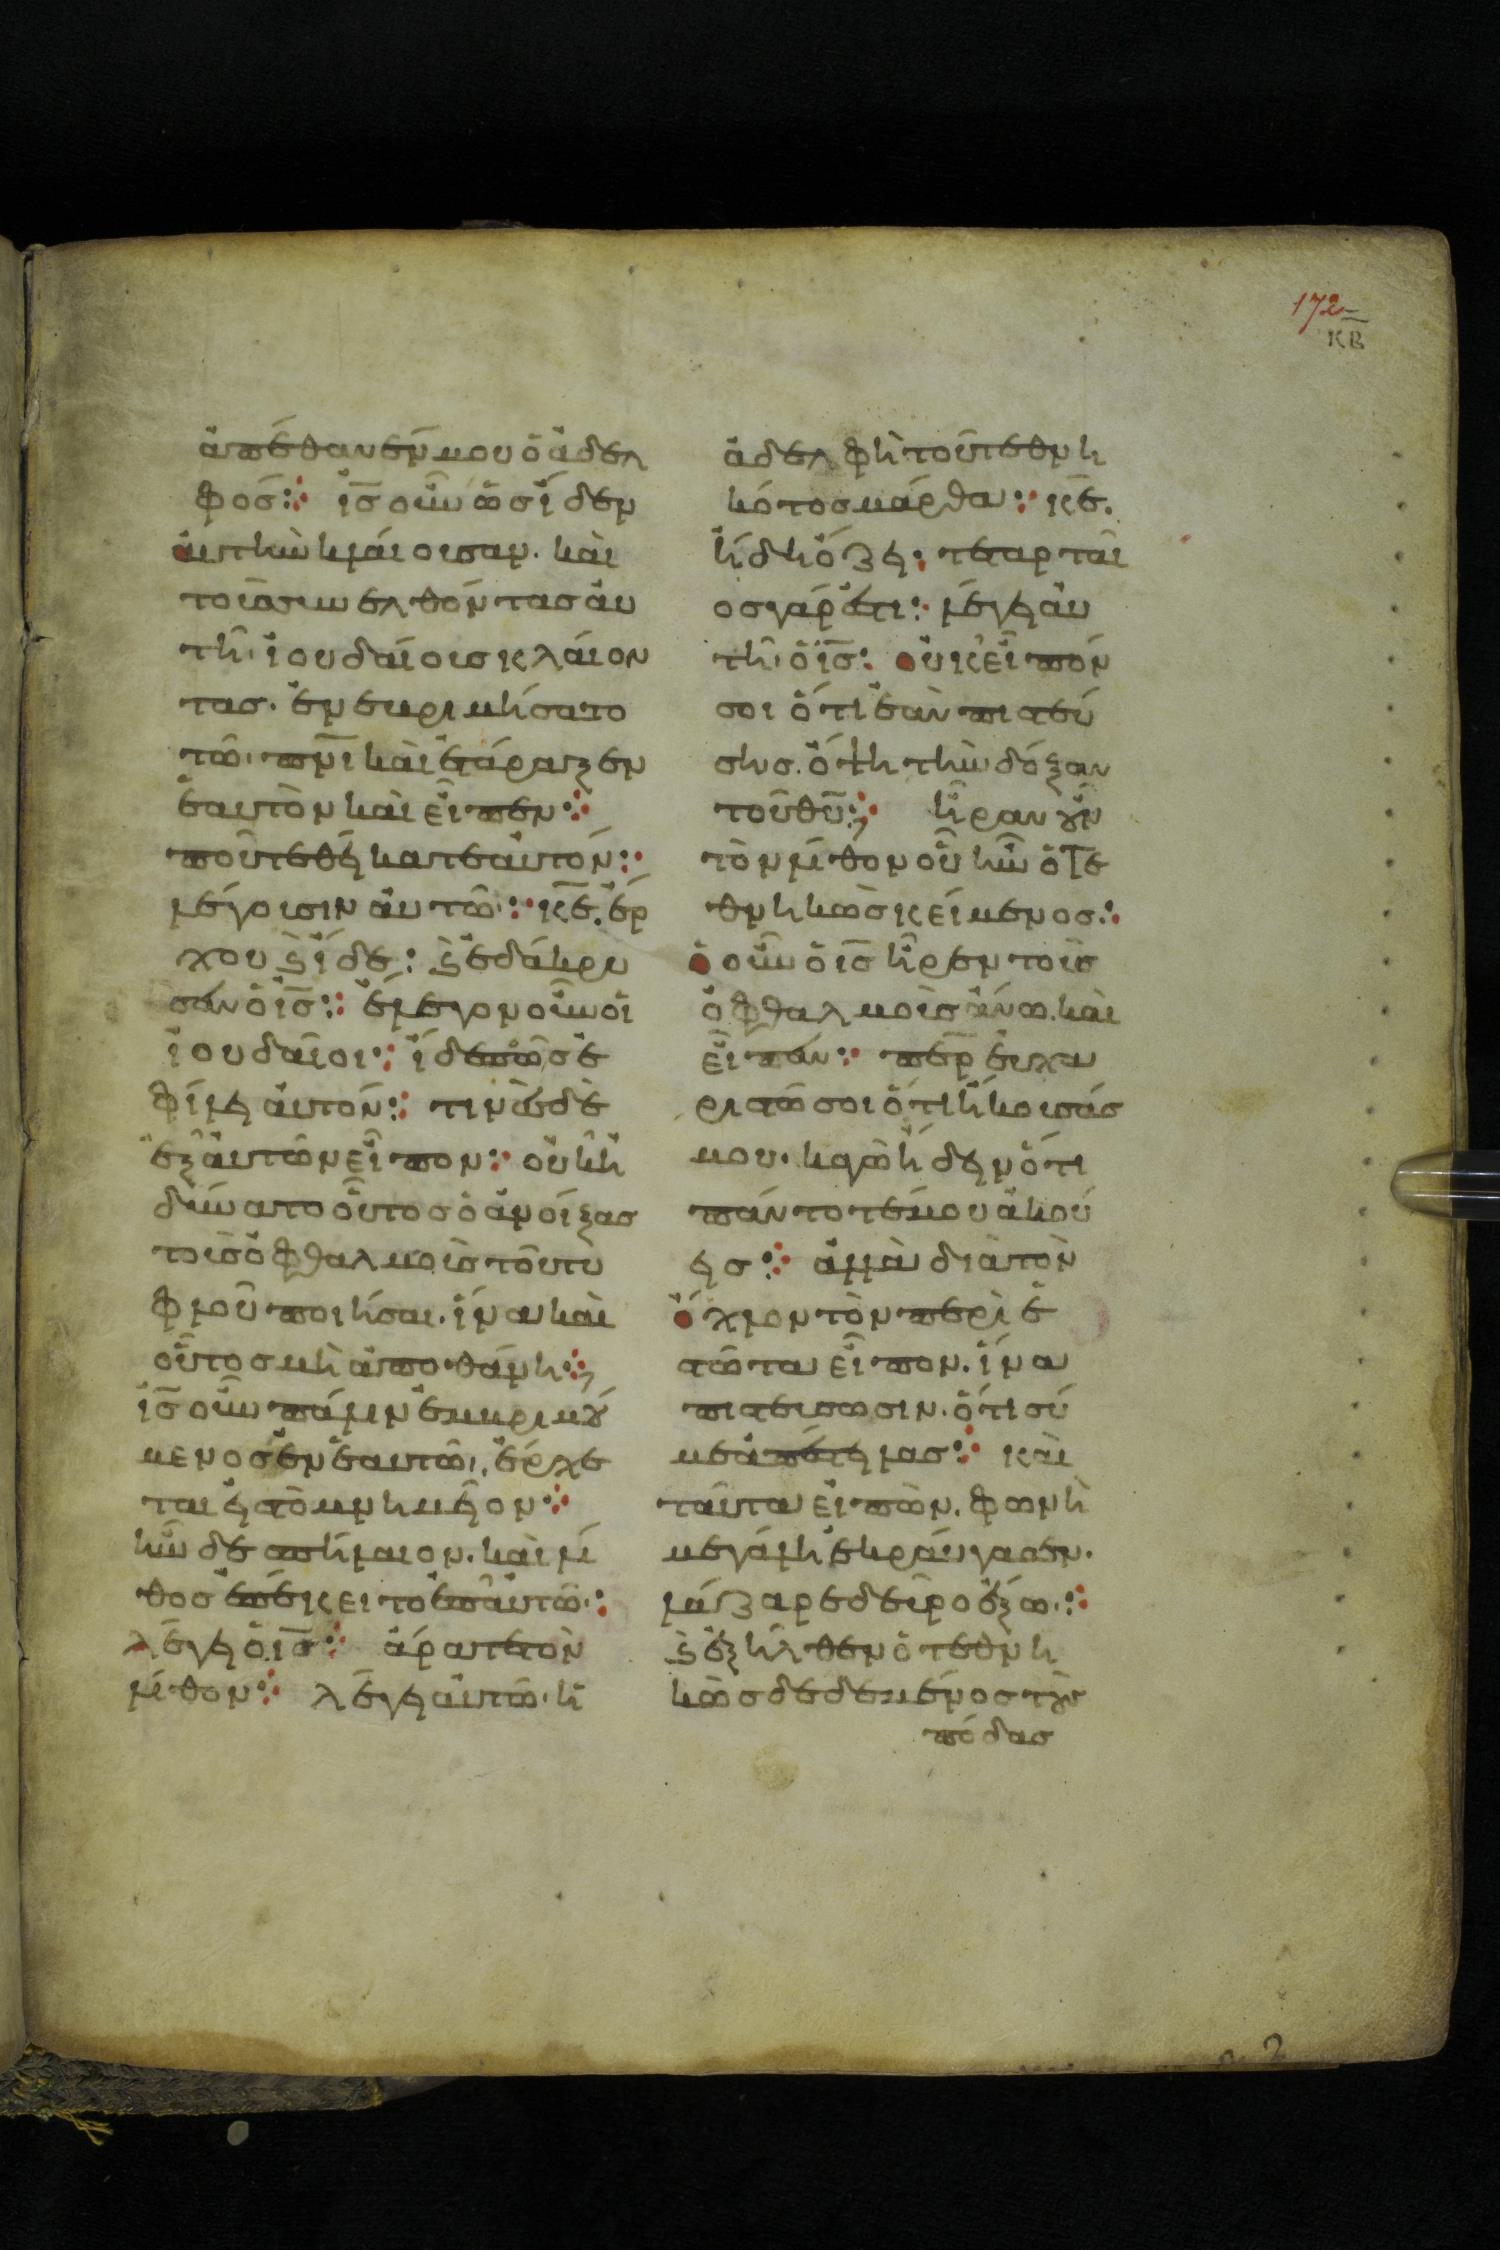 172
κβ
ἀπέθανέν μου ὁ ἀδελ
φός: ἰς οὖν ὡς ἴδεν
ἀυτὴν κλάιουσαν. καὶ
τοὺς συνελθόντας ἀυ
τῆ ἰουδαίους κλάιον
τας. ἐνεβριμήσατο
τῶ πνι καὶ ἐτάραξεν
ἑαυτὸν καὶ εἶπεν:
ποῦ τεθείκατε ἀυτόν:
λέγουσιν ἀυτῶ: κε. ἔρ
χου ϗ ἴδε: ϗ ἐδάκρυ
σεν ὁ ις: ἔλεγον οὖν οἱ
ἰουδαῖοι: ἴδε πῶς ἐ
φίλει ἀυτόν: τινὲς δὲ
ἐξ ἀυτῶν εἶπον: οὐκ ἠ
δύνατο οὗτος ὁ ἀνοίξας
τοὺς ὀφθαλμοὺς τοῦ τυ
φλοῦ ποιῆσαι. ἵνα καὶ
οὗτος μὴ ἀποθάνη:
ις οὖν πάλιν ἐμβριμού
μενος ἐν ἑαυτῶ, ἔρχε
ται εἰς τὸ μνημεῖον:
ἦν δὲ σπήλαιον. καὶ λί
θος ἐπέκειτο ἐπ' ἀυτῶ:
λέγει ὁ ις: ἄρατε τὸν
λίθον: λέγει ἀυτῶ ἡ
ἀδελφὴ τοῦ τεθνη
κότος μάρθα: κε.
ἤδη ὄζει: τεταρταῖ
ος γάρ ἐστι: λέγει ἀυ
τῆ ὁ ις: οὐκ εἶπόν
σοι ὅτι ἐὰν πιστεύ
σης. ὄψη τὴν δόξαν
τοῦ θυ: ἦραν οὖν
τὸν λίθον οὗ ἦν ὁ τε
θνηκὼς κείμενος:
ὁ οὖν ὁ ις ἦρεν τοὺς
ὀφθαλμοὺς ἄνω. καὶ
εἶπεν: περ ἐυχα
ριστῶ σοι ὅτι ἤκουσάς
μου. καγὼ ἤδειν ὅτι
πάντοτέ μου ἀκού
εις: ἀλλὰ διὰ τὸν
ὄχλον τὸν περὶ ἑ
στῶτα εἶπον. ἵνα
πιστεύσωσιν. ὅτι σύ
με ἀπέστειλας: καὶ
ταῦτα εἰπὼν. φωνῆ
μεγάλη ἐκράυγασεν.
λάζαρε δεῦρο ἔξω:
ϗ ἐξῆλθεν ὁ τεθνη
κὼς δεδεμένος τοὺς
πόδας